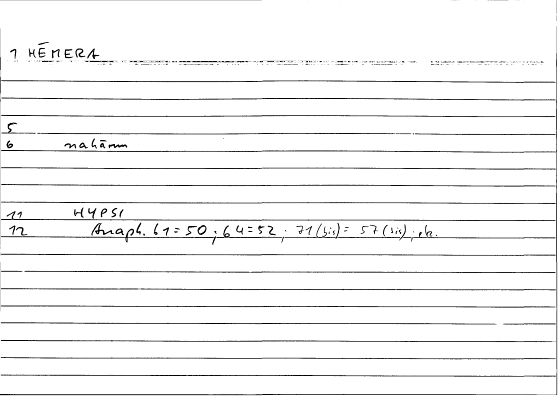 1 HĒMERA
5
6 nahārun
11 HYPSI
12 Anaph. 61=50; 64=52; 71(bis)= 57(bis); pl.